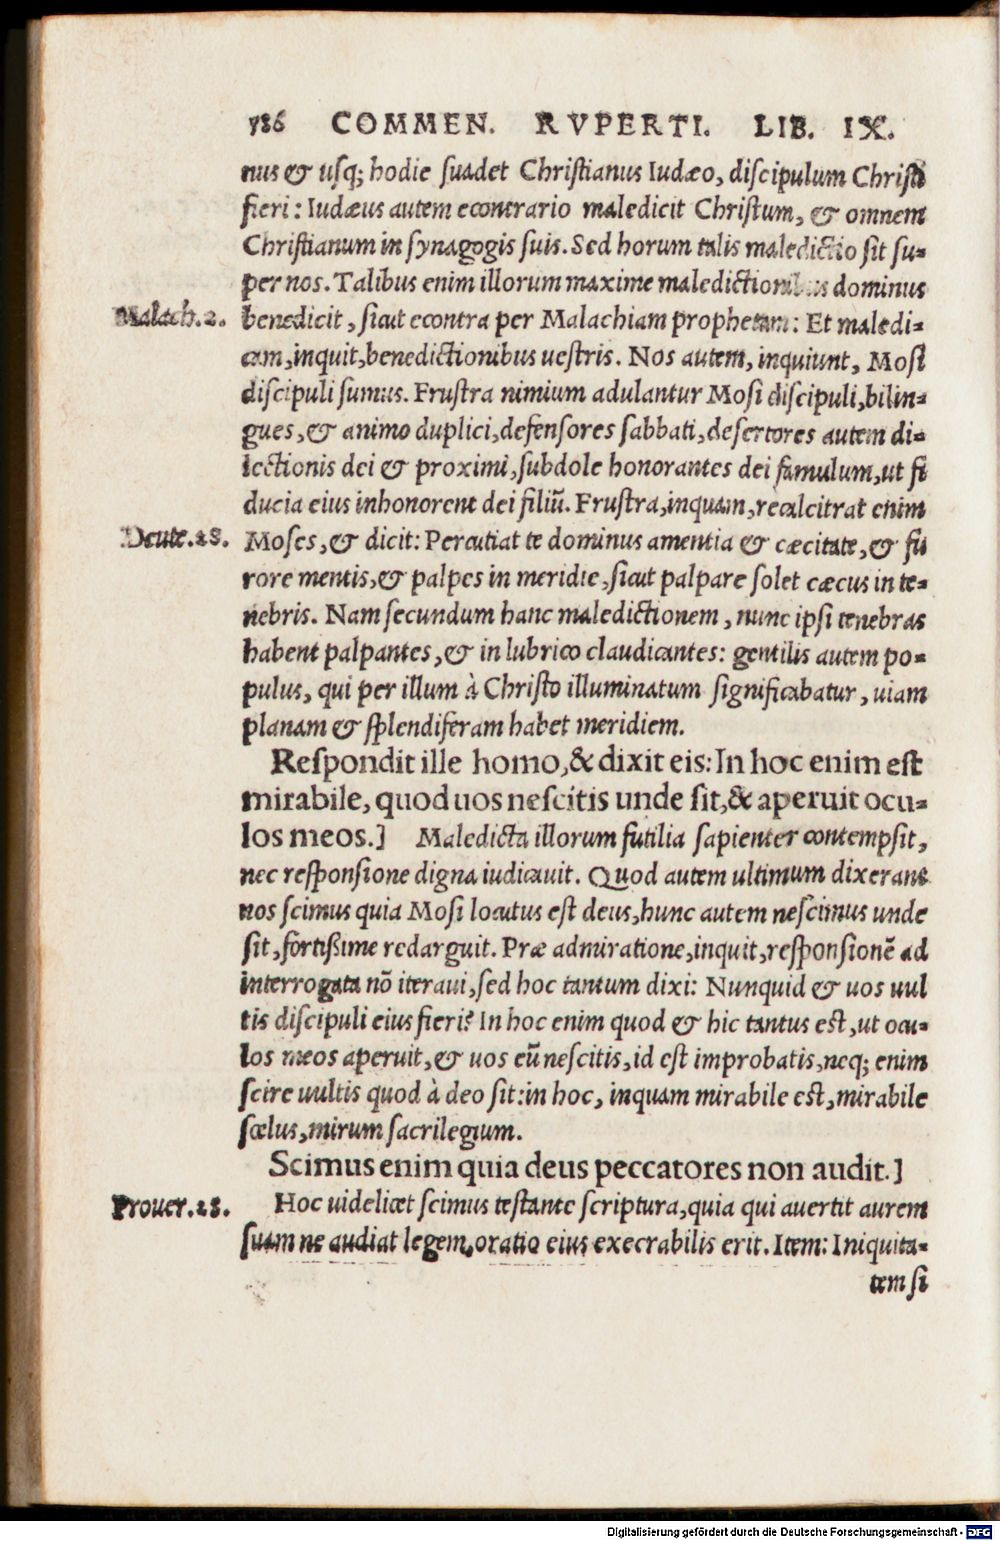 786 COMMEN. RVPERTI. LIB. IX.
nus & usq; hodie suadet Christianus Iudæo, discipulum Christi
fieri: Iudæus autem econtrario maledicit Christum, & omnem
Christianum in synagogis suis. Sed horum talis maledictio sit su-
per nos. Talibus enim illorum maxime maledictionibus dominus
Malach. 2. benedicit, sicut econtra per Malachiam prophetam: Et maledi-
cam, inquit, benedictionibus uestris. Nos autem, inquiunt, Mosi
discipuli sumus. Frustra nimium adulantur Mosi discipuli, bilin-
gues, & animo duplici, defensores sabbati, desertores autem di-
lectionis dei & proximi, subdole honorantes dei famulum, ut fi
ducia eius inhonorent dei filiũ. Frustra, inquam, recalcitrat enim
Deute. 28. Moses, & dicit: Percutiat te dominus amentia & cæcitate, & fu
rore mentis, & palpes in meridie, sicut palpare solet cæcus in te-
nebris. Nam secundum hanc maledictionem, nunc ipsi tenebras
habent palpantes, & in lubrico claudicantes: gentilis autem po-
pulus, qui per illum à Christo illuminatum significabatur, uiam
planam & splendiferam habet meridiem.
Respondit ille homo, & dixit eis: In hoc enim est
mirabile, quod uos nescitis unde sit, & aperuit ocu-
los meos.] Maledicta illorum futilia sapienter contempsit,
nec responsione digna iudicauit. Quod autem ultimum dixerant
nos scimus quia Mosi locutus est deus, hunc autem nescimus unde
sit, fortißime redarguit. Præ admiratione, inquit, responsionẽ ad
interrogata nõ iteraui, sed hoc tantum dixi: Nunquid & uos uul
tis discipuli eius fieri? In hoc enim quod & hic tantus est, ut ocu-
los meos aperuit, & uos eũ nescitis, id est improbatis, neq; enim
scire uultis quod à deo sit: in hoc, inquam mirabile est, mirabile
scelus, mirum sacrilegium.
Scimus enim quia deus peccatores non audit.]
Prouer. 28. Hoc uidelicet scimus testante scriptura, quia qui auertit aurem
suam ne audiat legem, oratio eius execrabilis erit. Item: Iniquita-
tem si
Digitalisierung gefördert durch die Deutsche Forschungsgemeinschaft - DFG